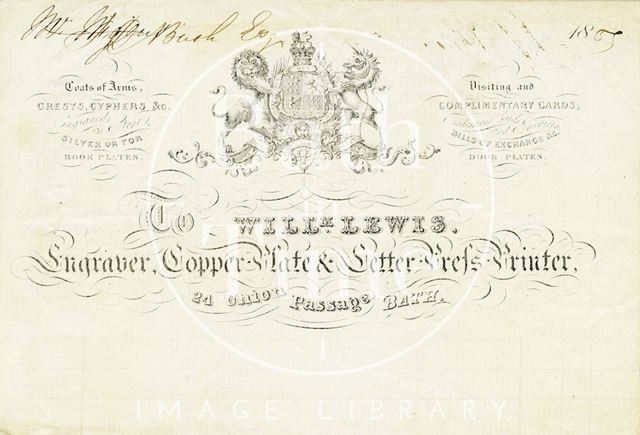 Mr Bush Esq
18
Coats of Arms,
CRESTS, CYPHERS, &c.
Engraved on Steel,
SILVER OR FOR
BOOK PLATES.
Visiting and
COMPLIMENTARY CARDS,
BILLS OF EXCHANGE &c,
DOOR PLATES.
To WILLM. LEWIS.
Engraver, Copper-Plate & Letter-Press-Printer,
24 Union Passage BATH.
Bath in Time
IMAGE LIBRARY